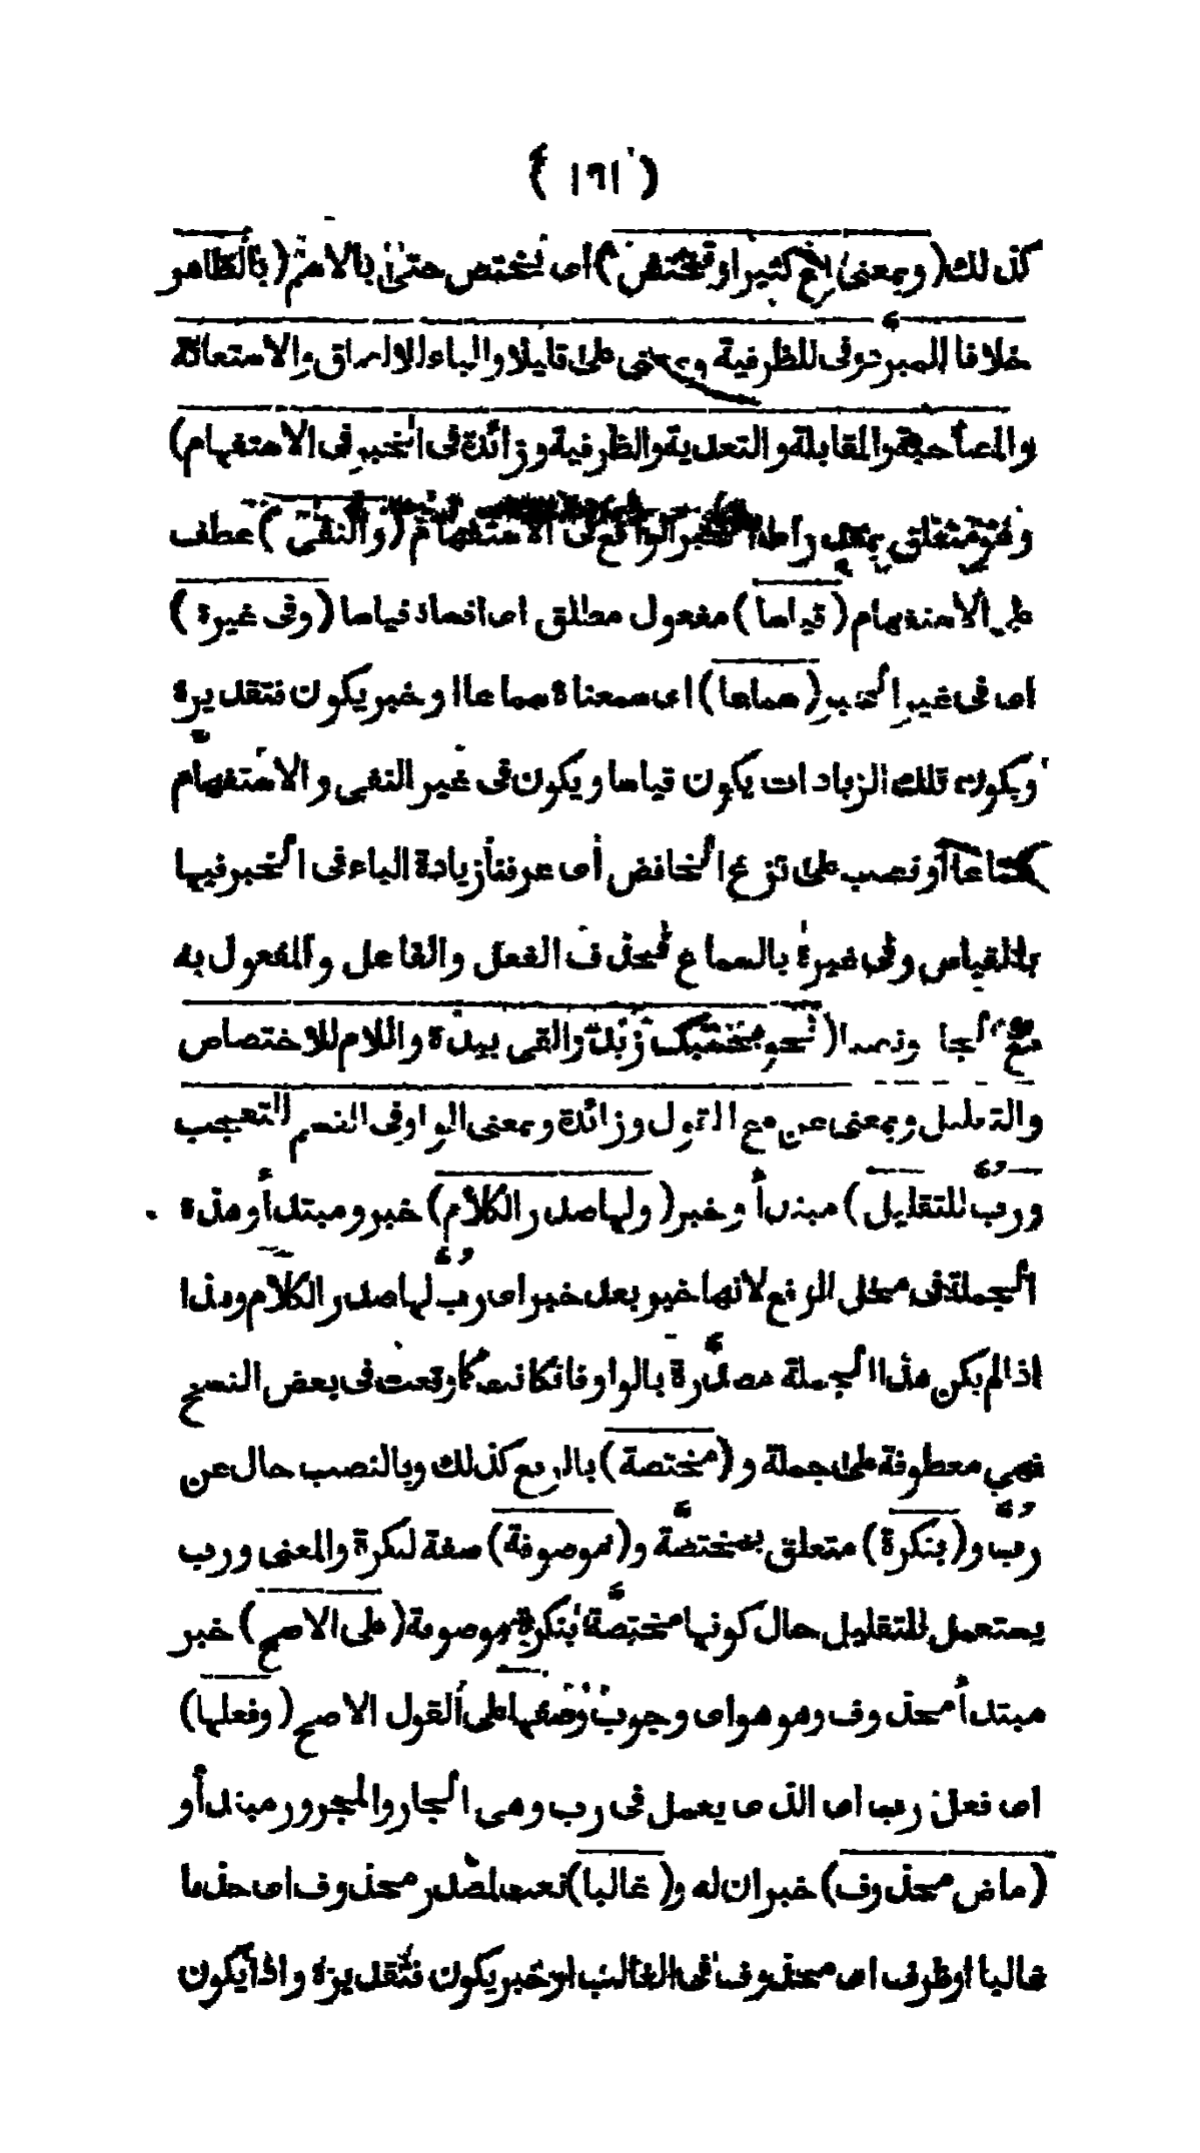 ( ١٦١ )
كذلك (وبمعنى مع كثيرا وتختص) اى تختص حتى بالاسم (بالظاهر
خلافا للمبرد وفى للظرفية وبمعنى على قليلا والباء للالصاق والاستعانة
والمصاحبة والمقابلة والتعدية والظرفية وزائدة فى الخبر فى الاستفهام)
وهو متعلق الخبر الواقع فى الاستفهام (والنفى) عطف
على الاستفهام (قياسا) مفعول مطلق اى قياسا (وفى غيره)
اى فى غير الخبر (سماعا) اى سمعناه سماعا او خبر يكون فتقديره
ويكون تلك الزيادات يكون قياسا ويكون فى غير النفى والاستفهام
سماعا او نصب على نزع الخافض أى عرفنا زيادة الباء فى الخبر فيها
بالقياس وفى غيره بالسماع فحذف الفعل والفاعل والمفعول به
مع (نحو بحسبك زيد والقى بيده واللام للاختصاص
والتعليل وبمعنى عن مع القول وزائدة وبمعنى الواو فى القسم للتعجب
وربّ للتقليل) مبتدأ وخبر (ولها صدر الكلام) خبر ومبتدأ وهذه
الجملة فى محل الرفع لانها خبر بعد خبر اى ربّ لها صدر الكلام وهذا
اذا لم يكن هذا الجملة مصدّرة بالواو فان كانت كما وقعت فى بعض النسخ
فهي معطوفة على جملة و (مختصة) بالرفع كذلك وبالنصب حال عن
ربّ و (بنكرة) متعلق بمختصّة و (موصوفة) صفة لنكرة والمعنى ورب
يستعمل للتقليل حال كونها مختصّة بنكرة موصوفة (على الاصح) خبر
مبتدأ محذوف وهو هو اى وجوب وصفها على القول الاصح (وفعلها)
اى فعل رب اى الذى يعمل فى رب وهى الجار والمجرور مبتدأ و
(ماض محذوف) خبران له و (غالبا) نعت لمصدر محذوف اى حذفا
غالبا او ظرف اى محذوف فى الغالب او خبر يكون فتقديره واذا يكون